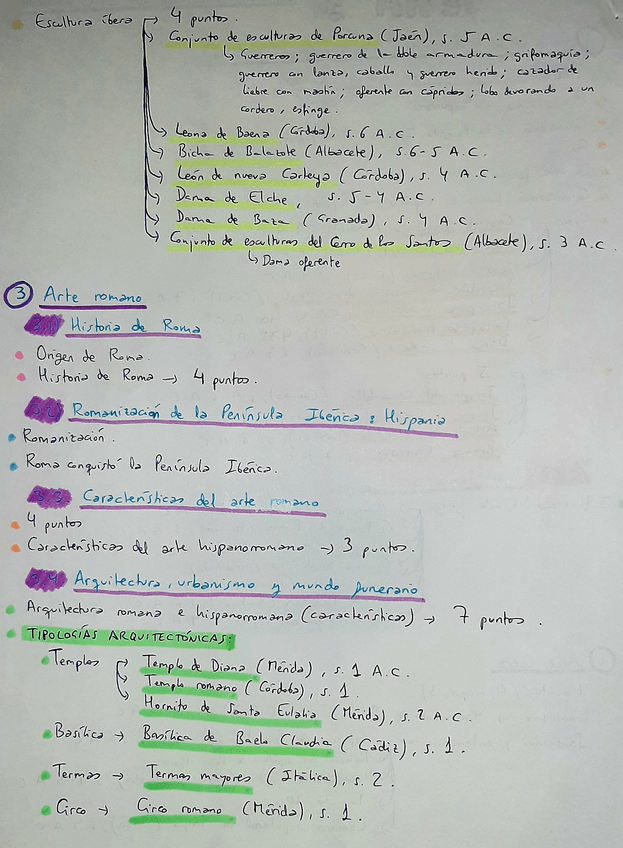 Escultura íbera → 4 puntos.
→ Conjunto de esculturas de Porcuna (Jaén), s. 5 A.C.
↳ Guerreros; guerrero de la doble armadura; grifomaquia;
guerrero con lanza, caballo y guerrero herido; cazador de
liebre con mastín; oferente con cápridos; lobo devorando a un
cordero, esfinge.
→ Leona de Baena (Córdoba), s. 6 A.C.
→ Bicha de Balazote (Albacete), s. 6-5 A.C.
→ León de nueva Carteya (Córdoba), s. 4 A.C.
→ Dama de Elche, s. 5-4 A.C.
→ Dama de Baza (Granada), s. 4 A.C.
→ Conjunto de esculturas del Cerro de los Santos (Albacete), s. 3 A.C.
↳ Dama oferente
3 Arte romano
3.1 Historia de Roma
• Origen de Roma.
• Historia de Roma → 4 puntos.
3.2 Romanización de la Península Ibérica: Hispania
• Romanización.
• Roma conquistó la Península Ibérica.
3.3 Características del arte romano
• 4 puntos
• Características del arte hispanorromano → 3 puntos.
3.4 Arquitectura, urbanismo y mundo funerario
• Arquitectura romana e hispanorromana (características) → 7 puntos.
• TIPOLOGÍAS ARQUITECTÓNICAS:
• Templos → Templo de Diana (Mérida), s. 1 A.C.
→ Templo romano (Córdoba), s. 1.
→ Hornito de Santa Eulalia (Mérida), s. 2 A.C.
• Basílica → Basílica de Baelo Claudia (Cádiz), s. 1.
• Termas → Termas mayores (Itálica), s. 2.
• Circo → Circo romano (Mérida), s. 1.